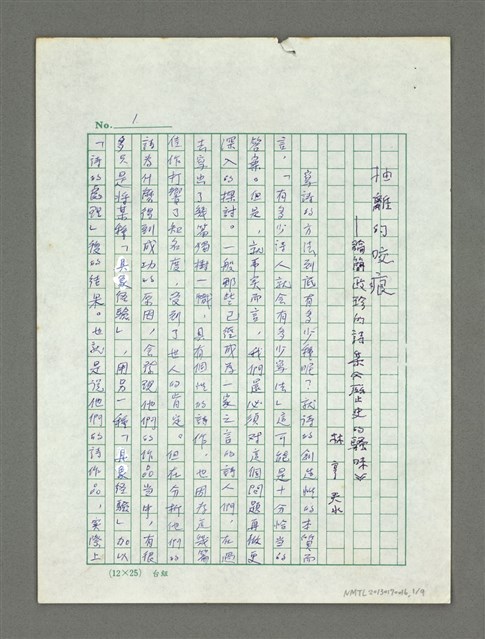 No. 1
抽離的咬痕
——論簡政珍的詩集《歷史的騷味》
林亨泰
寫詩的方法到底有多少種呢?就詩的創造性的本質而
言,「有多少詩人就會有多少寫法」這可能是十分恰當的
答案。但是,就事實而言,我們還必須對這個問題再做更
深入的探討。一般那些已經成為一家之言的詩人們,在過
去寫出了幾篇獨樹一幟,具有個性的詩作,也因為這幾篇
佳作打響了知名度,受到了世人的肯定。但在分析他們的
詩為什麼得到成功的原因,會發現他們的作品當中,有很
多只是將某種「具象經驗」,用另一種「具象經驗」加以
「詩的處理」後的結果。也就是說他們的詩作品,實際上
(12×25) 台組
NMTL20130170016, 1/9